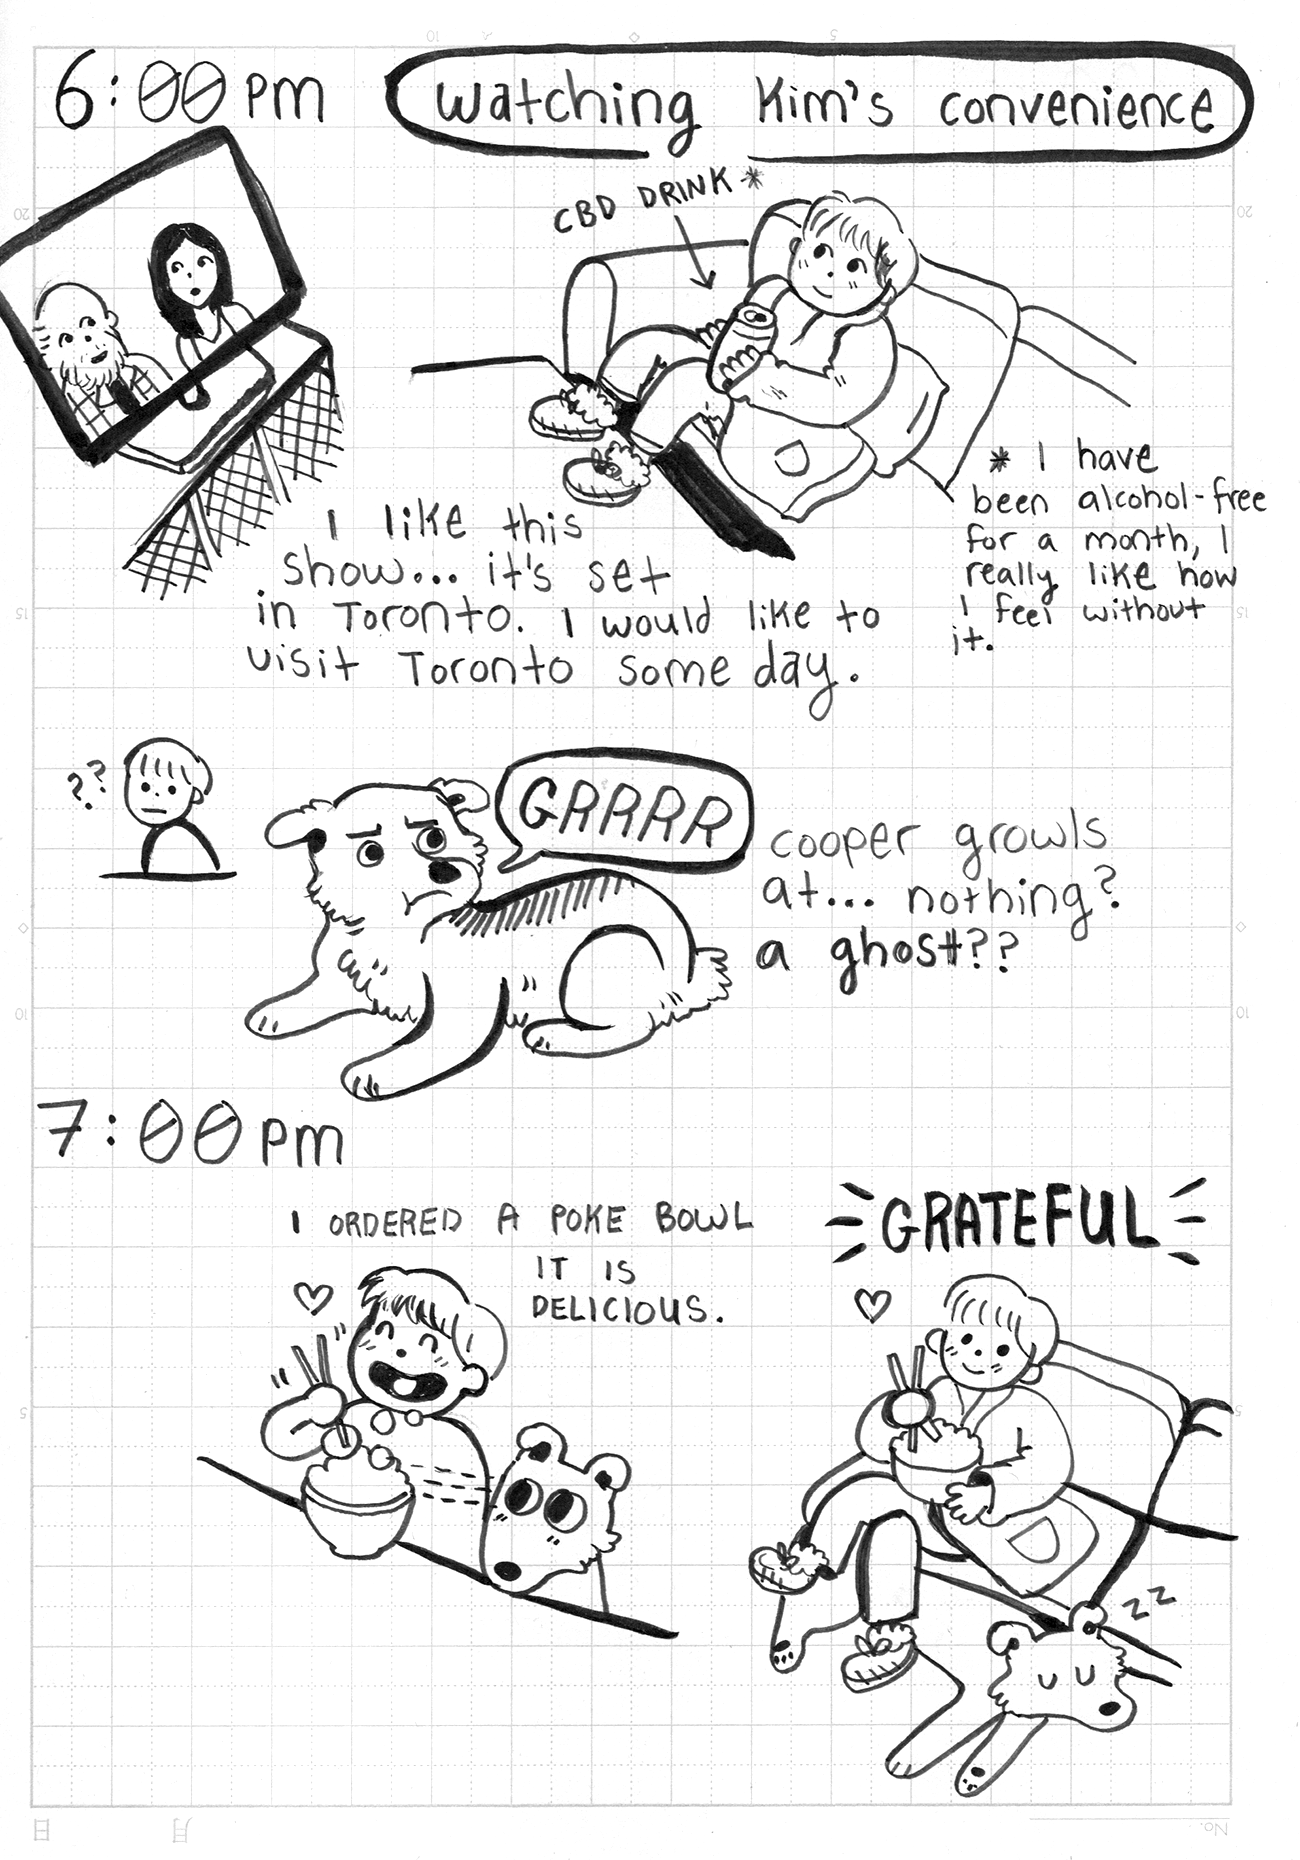 6:00 pm
watching Kim's convenience
CBD DRINK *
I like this
show... it's set
in Toronto. I would like to
visit Toronto some day.
* I have
been alcohol-free
for a month, I
really like how
I feel without
it.
??
GRRRR
cooper growls
at... nothing?
a ghost??
7:00 pm
I ORDERED A POKE BOWL
IT IS
DELICIOUS.
GRATEFUL
zz
5
10
20
20
15
15
10
10
5
5
日
月
No.